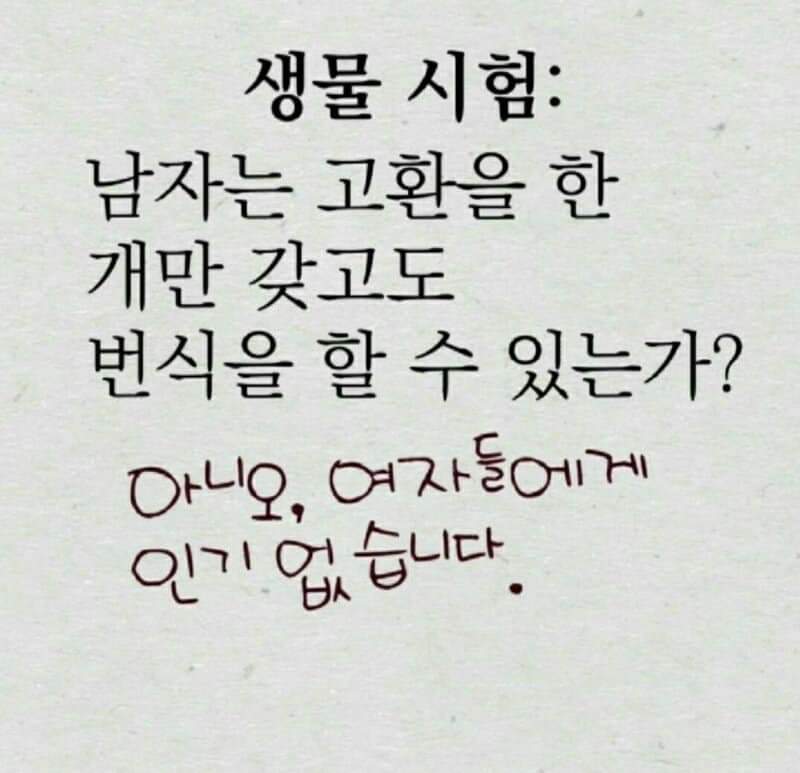 생물 시험:
남자는 고환을 한
개만 갖고도
번식을 할 수 있는가?
아니오, 여자들에게
인기 없습니다.